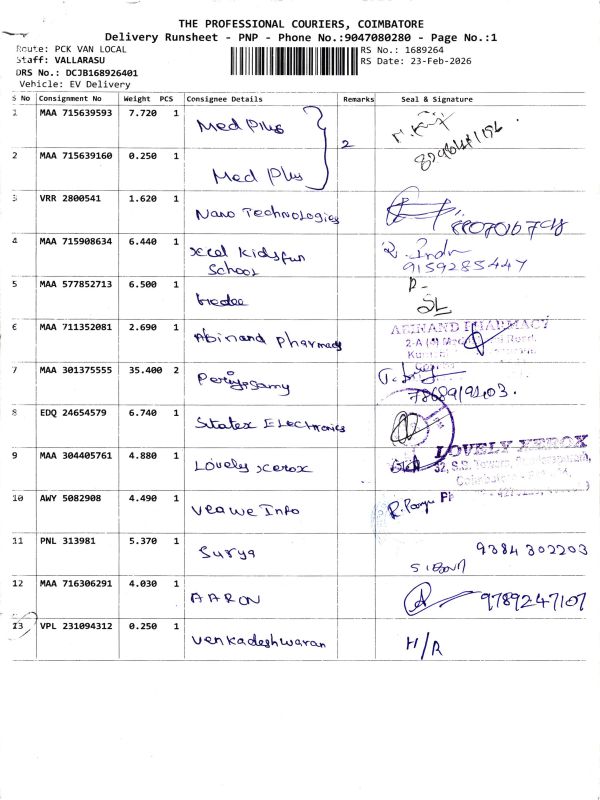 THE PROFESSIONAL COURIERS, COIMBATORE
Delivery Runsheet - PNP - Phone No.:9047080280 - Page No.:1
Route: PCK VAN LOCAL
Staff: VALLARASU
DRS No.: DCJB168926401
Vehicle: EV Delivery
RS No.: 1689264
RS Date: 23-Feb-2026
S No Consignment No Weight PCS Consignee Details Remarks Seal & Signature
1 MAA 715639593 7.720 1 Med Plus
2
2 MAA 715639160 0.250 1 Med Plus
3 VRR 2800541 1.620 1 Nano Technologies
4 MAA 715908634 6.440 1 Xcel Kidsfun
School 9159285447
5 MAA 577852713 6.500 1
6 MAA 711352081 2.690 1 Abinand Pharmacy ABINAND PHARMACY
7 MAA 301375555 35.400 2 Periyasamy
8 EDQ 24654579 6.740 1 Statex Electronics
9 MAA 304405761 4.880 1 Lovely Xerox LOVELY XEROX
10 AWY 5082908 4.490 1 Veawe Info
11 PNL 313981 5.370 1 Surya 9384302203
12 MAA 716306291 4.030 1 AARON 9789247107
13 VPL 231094312 0.250 1 Venkadeshwaran H/R